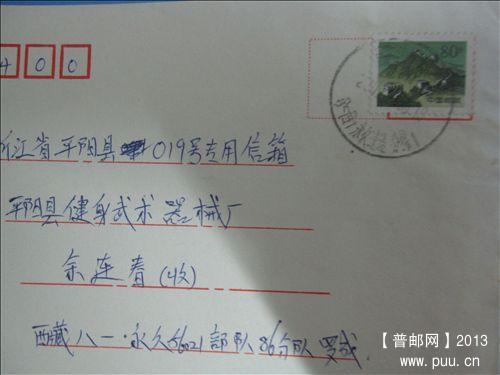 400
80分
江省平阳县019号专用信箱
平阳县健身武术器械厂
余连春(收)
西藏八一·永久56021部队86分队 罗成
【普邮网】2013
www.puu.cn